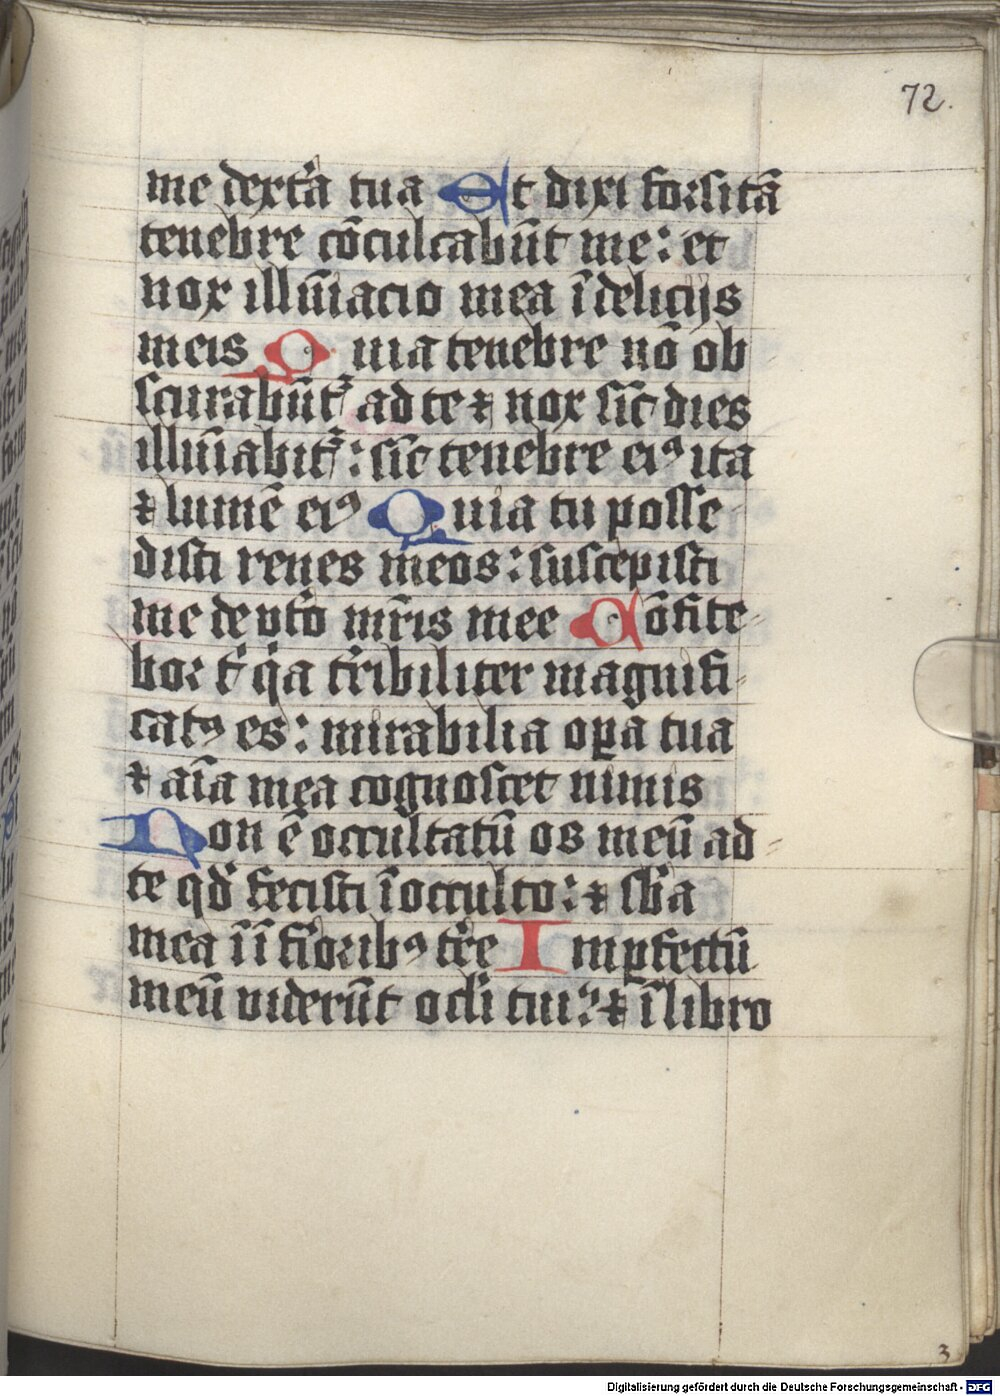 72.
me dext̃a tua Et dixi forsitā
tenebre cōculcabūt me: et
nox illūiacio mea ī delicijs
meis Quia tenebre nō ob
scurabūt᷑ ad te ⁊ nox sic̄ dies
illūiabit᷑: sic̄ tenebre eiꝰ ita
⁊ lumē eiꝰ Quia tu posse-
disti renes meos: suscepisti
me de vt̄o mr̄is mee Cōfite-
bor t̄ q̄a t̄ribiliter magnifi-
catꝰ es: mirabilia oꝑa tua
⁊ aīa mea cognoscet nimis
Non ē occultatū os meū ad-
te qd̄ fecisti ī occulto: ⁊ sb̄a
mea ī īf̄ioribꝰ t̄re Imꝑfectū
meū viderūt ocl̄i tui: ⁊ ī libro
3
Digitalisierung gefördert durch die Deutsche Forschungsgemeinschaft - DFG